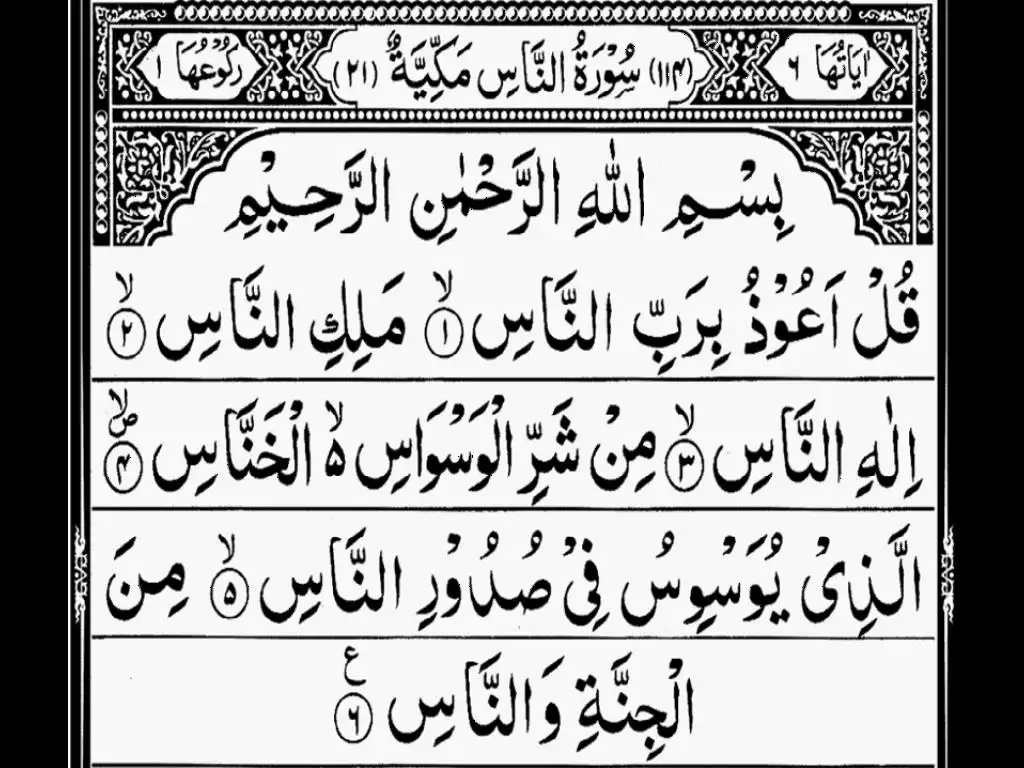 اٰیَاتُهَا ۶ (۱۱۴) سُوْرَةُ النَّاسِ مَكِّیَّةٌ (۲۱) رُكُوْعُهَا ۱
بِسْمِ اللّٰهِ الرَّحْمٰنِ الرَّحِیْمِ
قُلْ اَعُوْذُ بِرَبِّ النَّاسِ ۙ﴿۱﴾ مَلِكِ النَّاسِ ۙ﴿۲﴾
اِلٰهِ النَّاسِ ۙ﴿۳﴾ مِنْ شَرِّ الْوَسْوَاسِ ۙ۵ الْخَنَّاسِ ۪ۙ﴿۴﴾
الَّذِیْ یُوَسْوِسُ فِیْ صُدُوْرِ النَّاسِ ۙ﴿۵﴾ مِنَ
الْجِنَّةِ وَالنَّاسِ ﴿۶﴾ ع